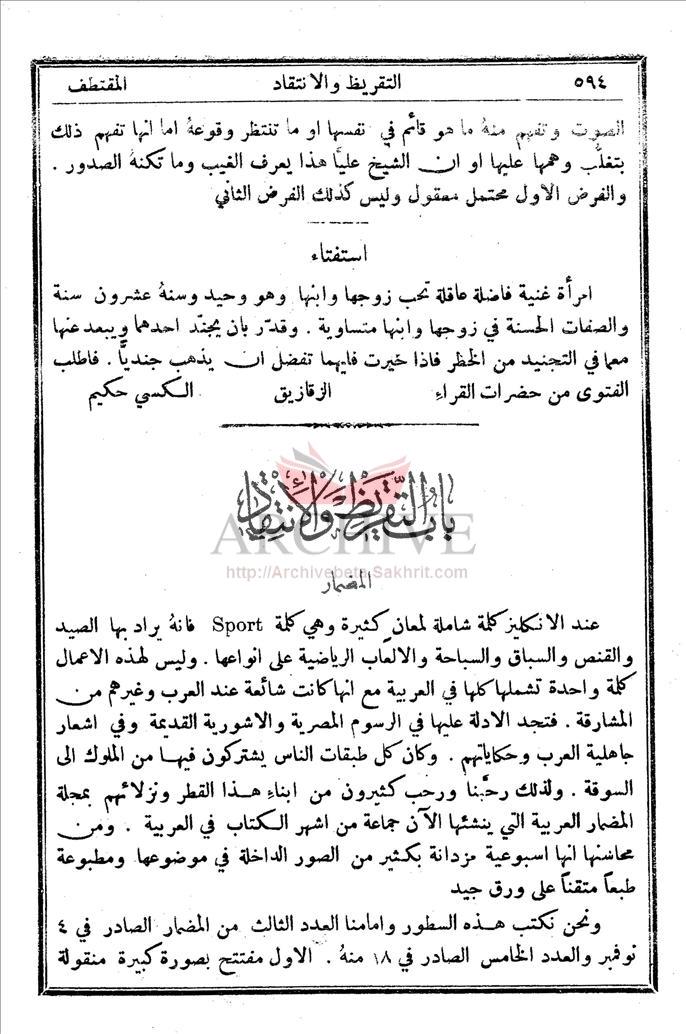 ٥٩٤ التقريظ والانتقاد المقتطف
الصوت وتفهم منهُ ما هو قائم في نفسها او ما تنتظر وقوعهُ اما انها تفهم ذلك
بتغلُّب وهمها عليها او ان الشيخ عليًّا هذا يعرف الغيب وما تكنهُ الصدور .
والفرض الاول محتمل معقول وليس كذلك الفرض الثاني
استفتاء
امرأة غنية فاضلة عاقلة تحب زوجها وابنها وهو وحيد وسنهُ عشرون سنة
والصفات الحسنة في زوجها وابنها متساوية . وقدّر بان يجنّد احدهما ويبعد عنها
معما في التجنيد من الخطر فاذا خيرت فايهما تفضل ان يذهب جنديًّا . فاطلب
الفتوى من حضرات القراءِ الزقازيق الكسي حكيم
باب التقريظ والانتقاد
ARCHIVE
http://Archivebeta.Sakhrit.com
المضمار
عند الانكليز كلمة شاملة لمعانٍ كثيرة وهي كلمة Sport فانهُ يراد بها الصيد
والقنص والسباق والسباحة والالعاب الرياضية على انواعها . وليس لهذه الاعمال
كلمة واحدة تشملها كلها في العربية مع انها كانت شائعة عند العرب وغيرهم من
المشارقة . فتجد الادلة عليها في الرسوم المصرية والاشورية القديمة وفي اشعار
جاهلية العرب وحكاياتهم . وكان كل طبقات الناس يشتركون فيها من الملوك الى
السوقة . ولذلك رحَّبنا ورحب كثيرون من ابناءِ هذا القطر ونزلائهم بمجلة
المضمار العربية التي ينشئها الآن جماعة من اشهر الكتاب في العربية . ومن
محاسنها انها اسبوعية مزدانة بكثير من الصور الداخلة في موضوعها ومطبوعة
طبعاً متقناً على ورق جيد
ونحن نكتب هذه السطور وامامنا العدد الثالث من المضمار الصادر في ٤
نوفمبر والعدد الخامس الصادر في ١٨ منهُ . الاول مفتتح بصورة كبيرة منقولة